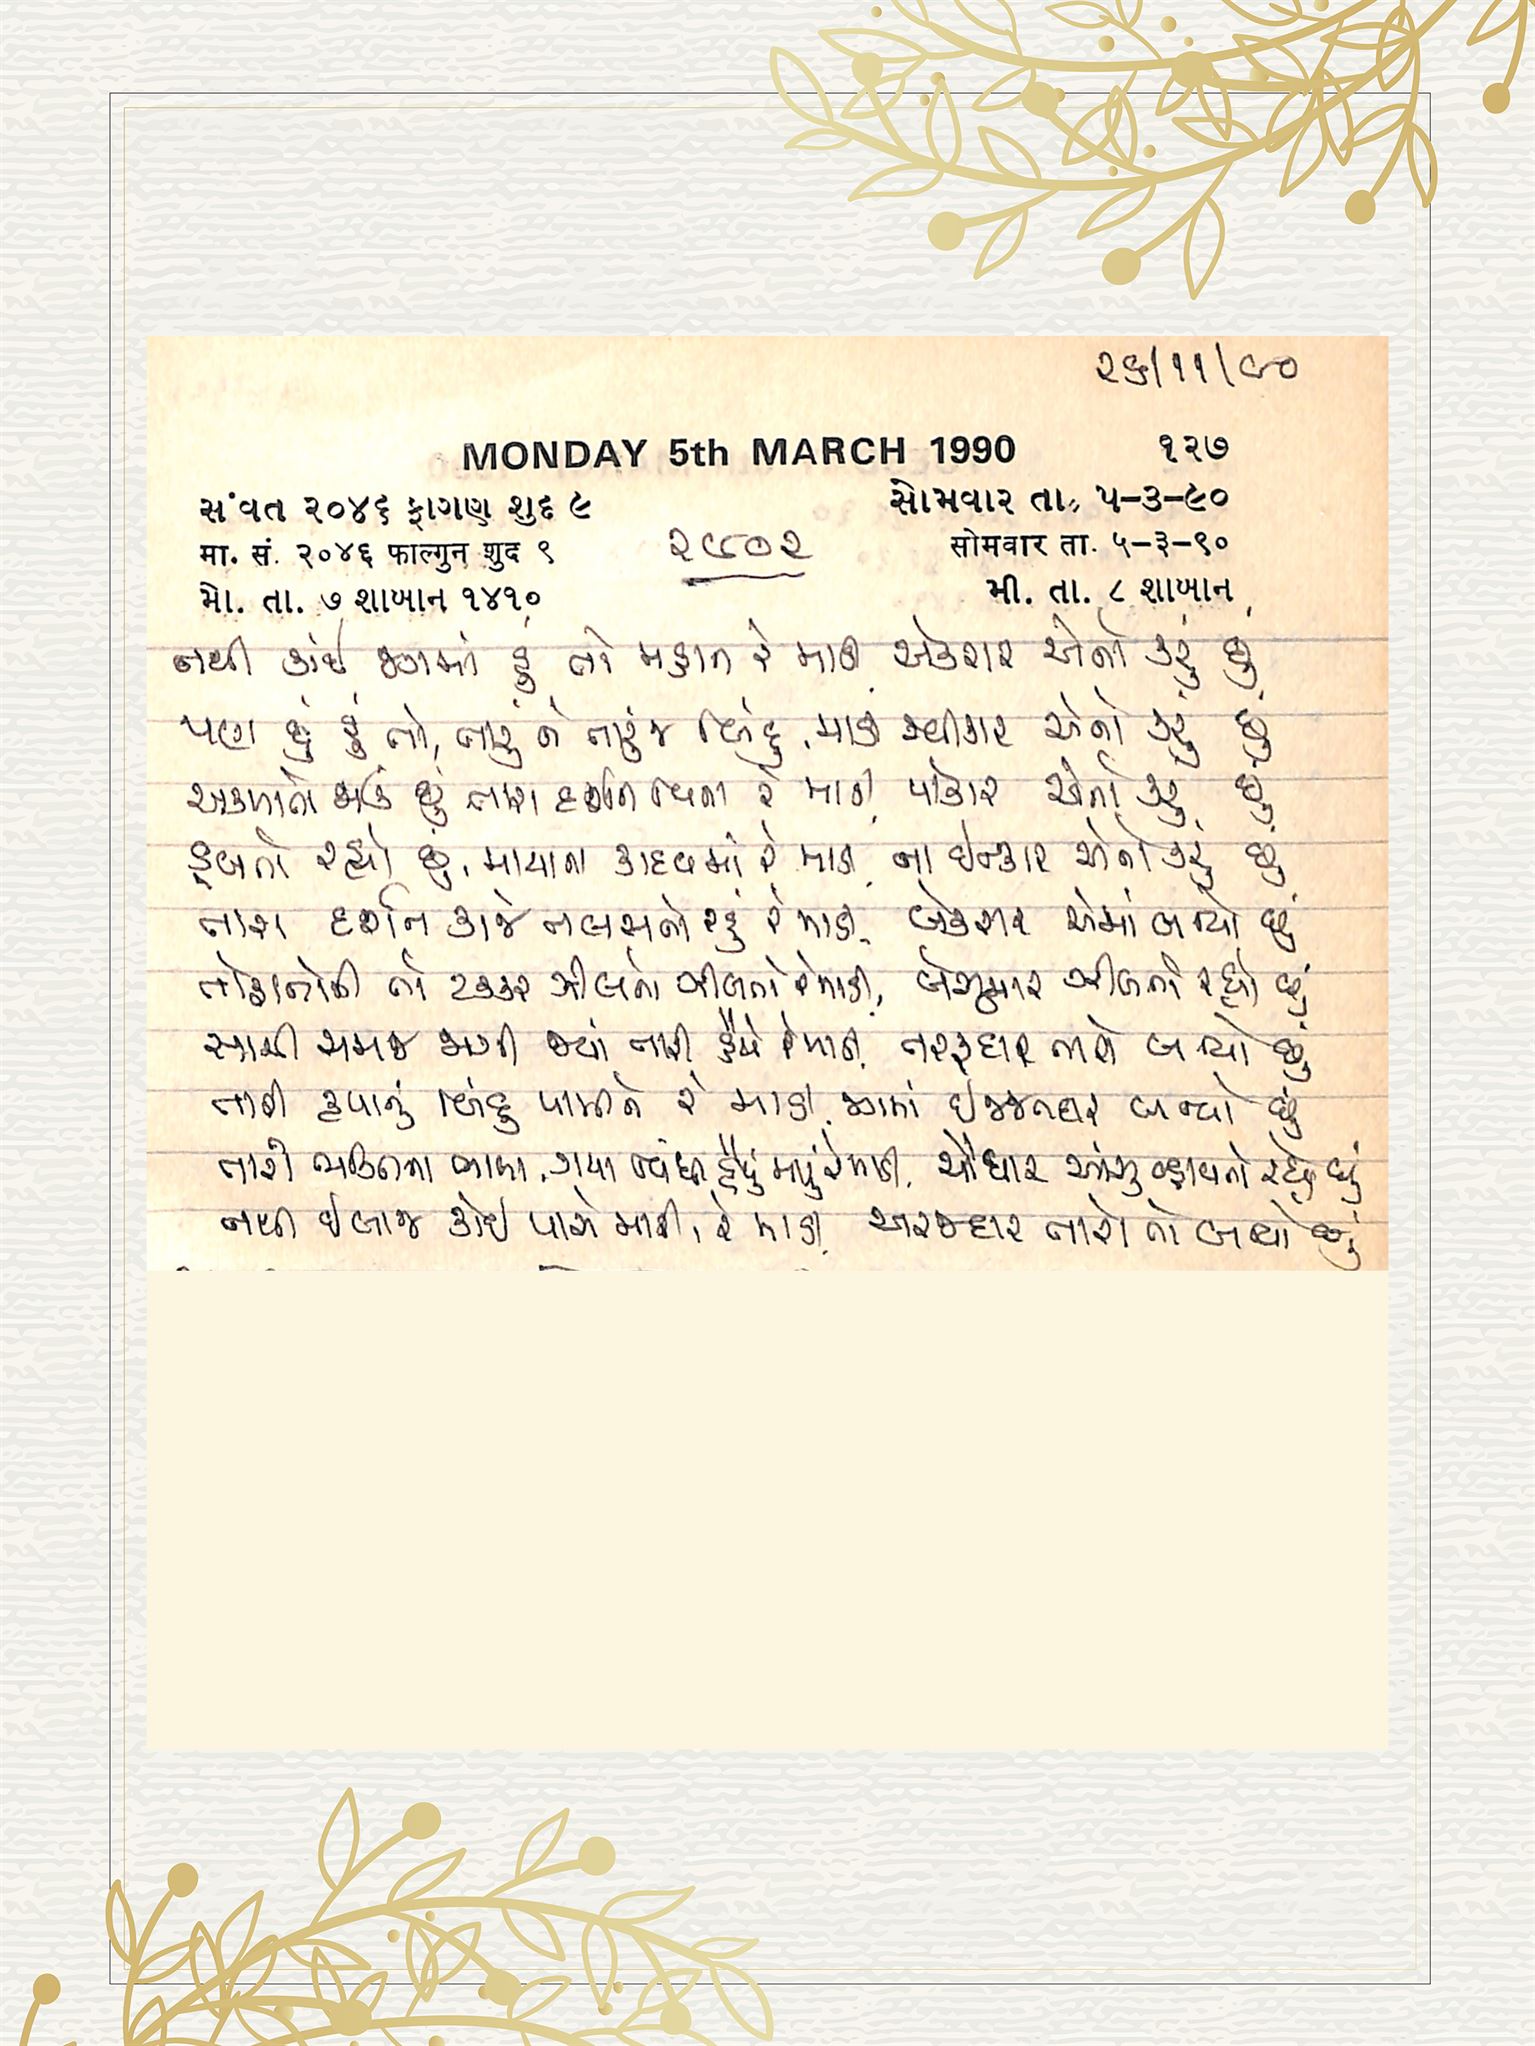 ૨૬/૧૧/૯૦
MONDAY 5th MARCH 1990 ૧૨૭
સંવત ૨૦૪૬ ફાગણ શુદ ૯ સોમવાર તા. ૫-૩-૯૦
मा. सं. २०४६ फाल्गुन शुद ९ सोमवार ता. ५-३-९०
મો. તા. ૭ શાબાન ૧૪૧૦ મી. તા. ૮ શાબાન
૨૯૦૨
નથી કાંઈ જગમાં હું તો મહાન રે માડી, એકરાર એનો કરું છું
પણ છું હું તો, તારું ને તારું જ બિંદુ, માડી સ્વીકાર એનો કરું છું
અકળાતો જાઉં છું તારા દર્શન વિના રે માડી, પોકાર એનો કરું છું
ડૂબતો રહ્યો છું, માયાના કાદવમાં રે માડી, ના ઇન્કાર એનો કરું છું
તારા દર્શન કાજે તલસતો રહું રે માડી, બેકરાર એમાં બન્યો છું
તોફાનોની તો ટક્કર ઝીલતો ઝીલતો રે માડી, બેશુમાર ઝીલતો રહ્યો છું
સાચી સમજ જાગી જ્યાં તારી હૈયે રે માડી, તરફદાર તારો બન્યો છું
તારી કૃપાનું બિંદુ પામીને રે માડી, જગમાં ઇજ્જતદાર બન્યો છું
તારી ભક્તિના ભાવમાં, ગયા જ્યાં હૈયું મારું રે માડી, ચોધાર આંસુ વહાવતો રહ્યો છું
નથી ઇલાજ કોઈ પાસે મારી, રે માડી, અરજદાર તારો તો બન્યો છું